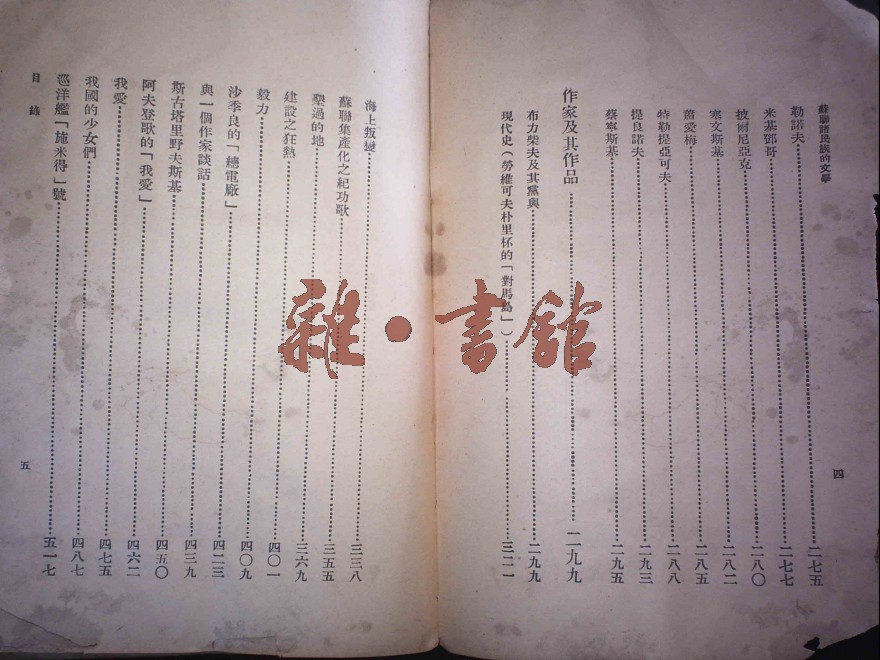 蘇聯諸民族的文學
勒諾夫……二七五
米基鄧哥……二七七
披爾尼亞克……二八〇
塞文斯基……二八二
蕭愛梅……二八五
特勒提亞可夫……二八八
提良諾夫……二九三
蔡寧斯基……二九五
作家及其作品……二九九
布力柴夫及其黨與……二九九
現代史(勞維可夫朴里杯的「對馬島」)……三二一
四
海上叛變……三三八
蘇聯集產化之紀功歌……三五五
墾過的地……三六九
建設之狂熱……四〇一
毅力……四〇九
沙季良的「總電廠」……四二三
與一個作家談話……四三九
斯古塔里野夫斯基……四五〇
阿夫登歌的「我愛」……四六二
我愛……四七五
我國的少女們……四八七
巡洋艦「施米得」號……五一七
目錄
五
雜·書館